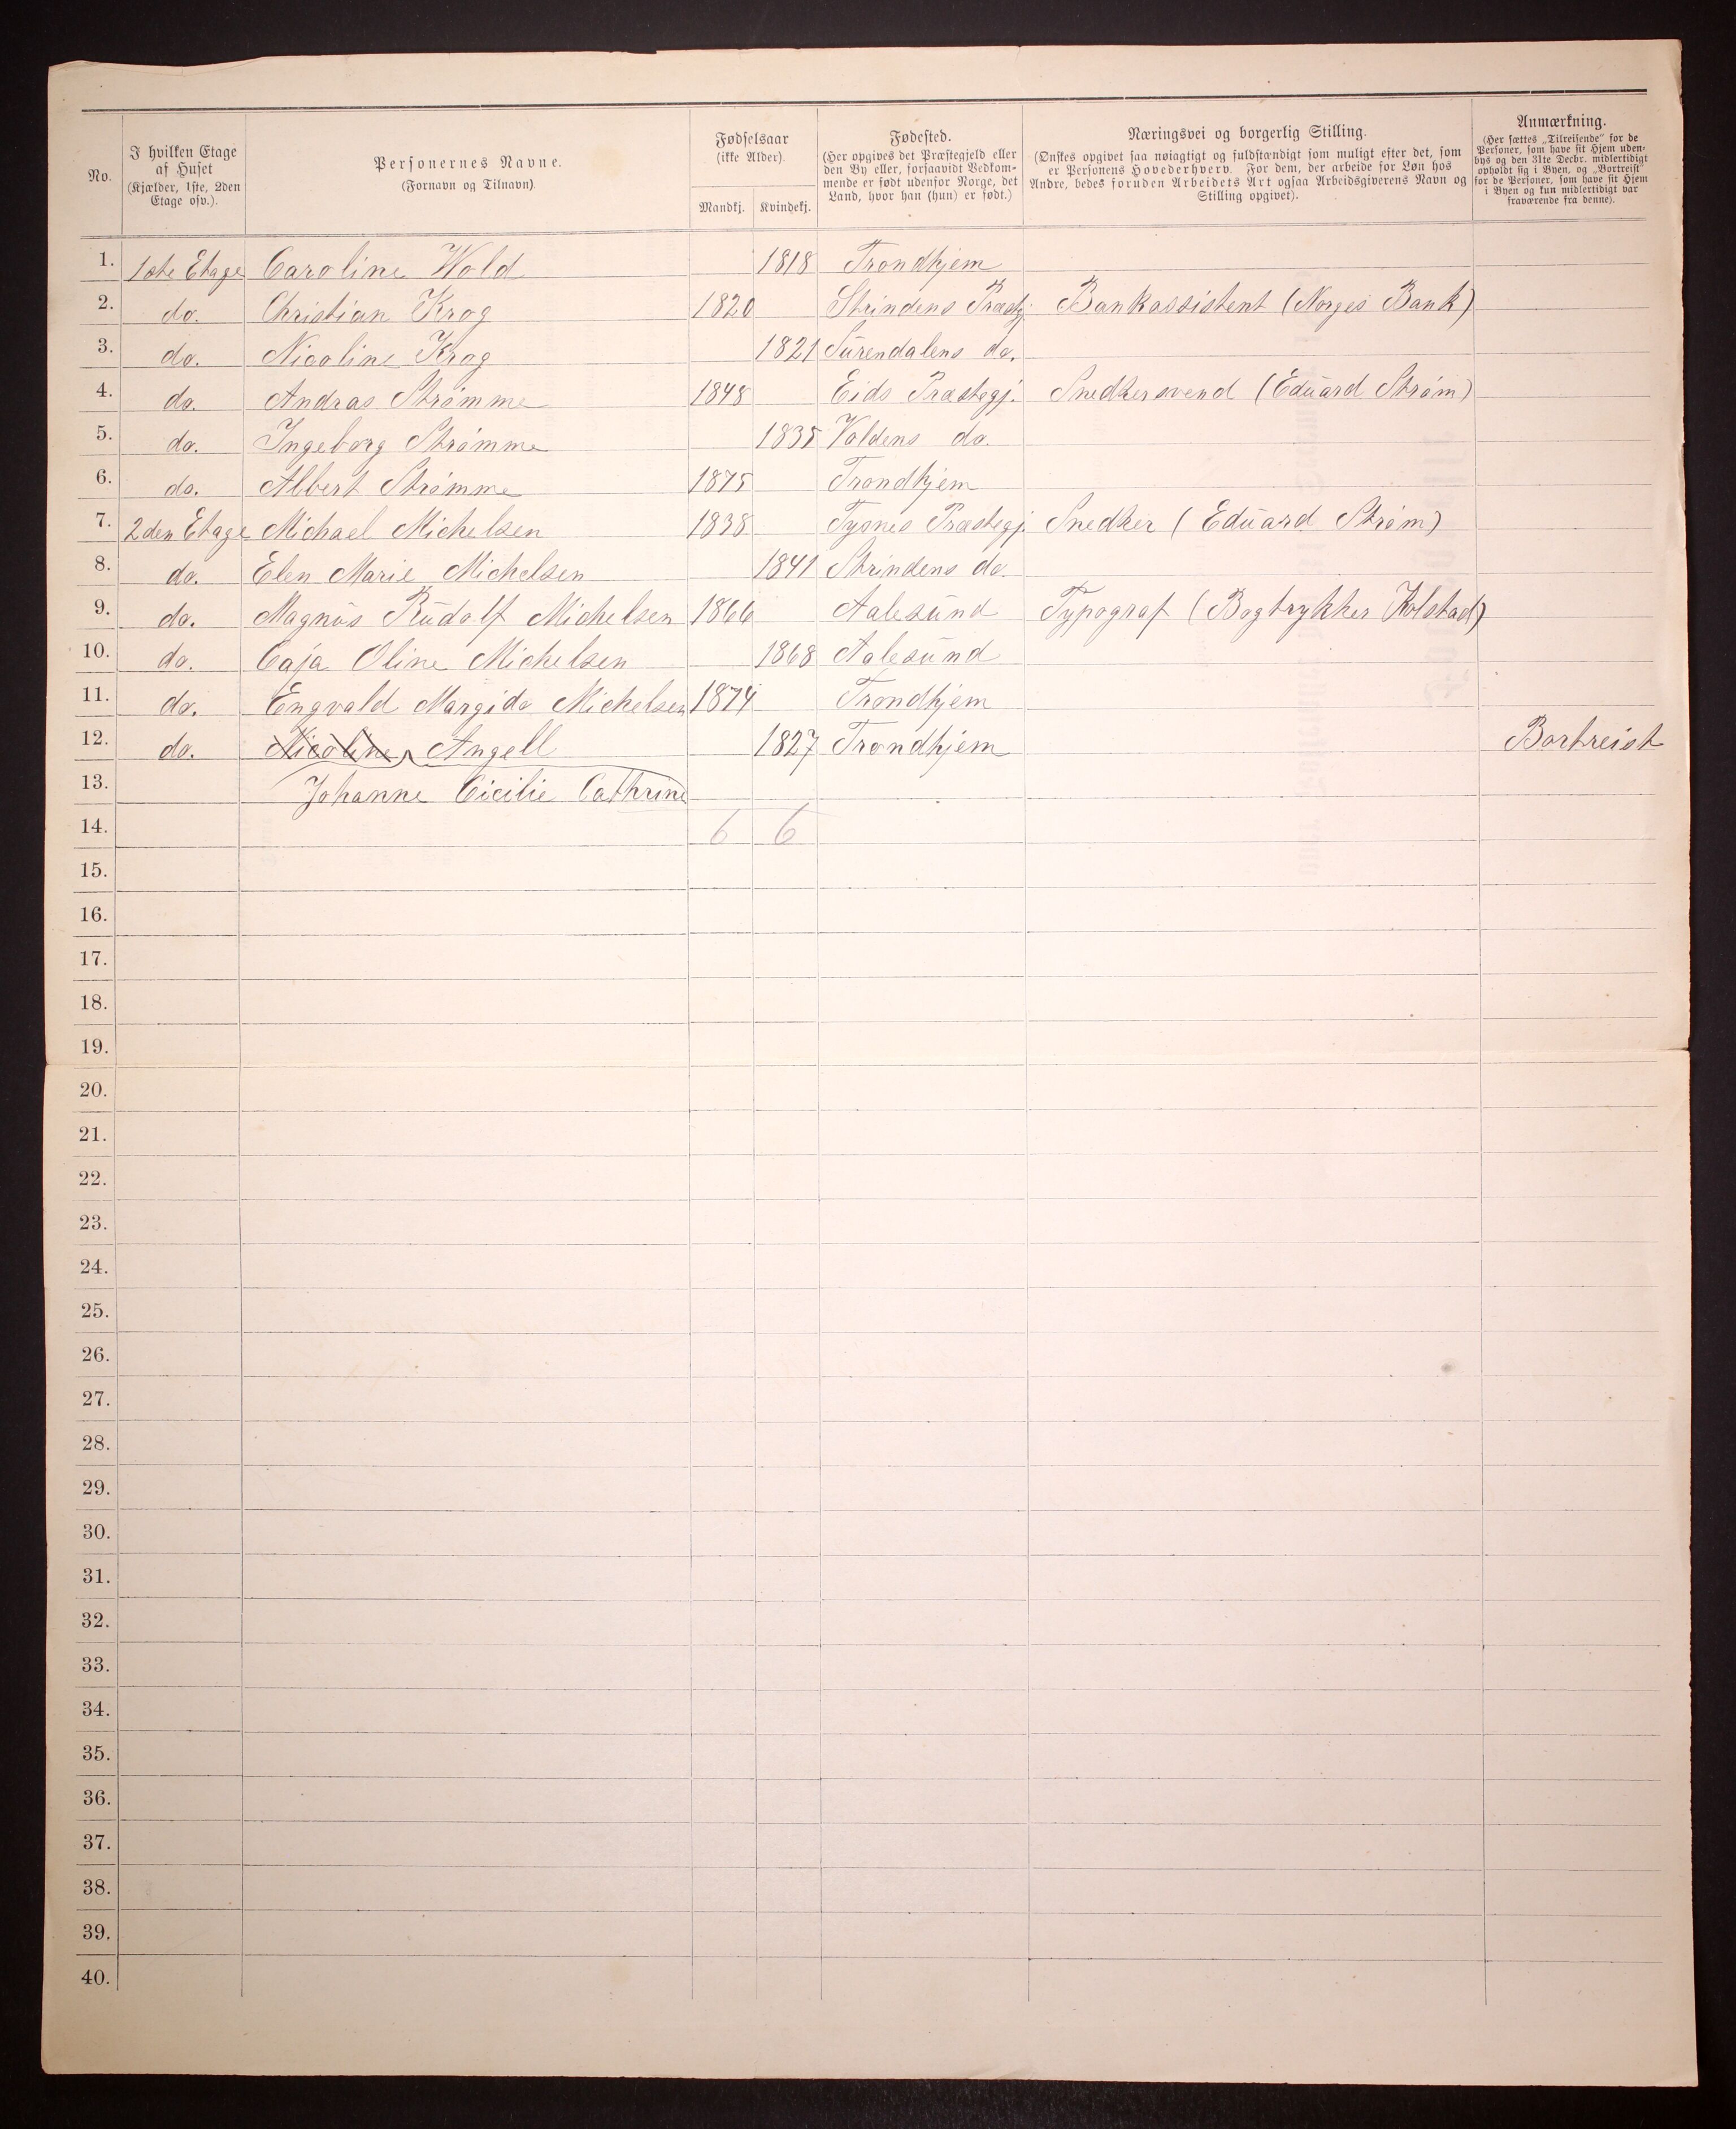 No.
I hvilken Etage
af Huset
(Kjælder, 1ste, 2den
Etage osv.).
Personernes Navne.
(Fornavn og Tilnavn).
Fødselsaar
(ikke Alder).
Mandkj. Kvindekj.
Fødested.
(Her opgives det Præstegjeld eller
den By eller, forsaavidt Vedkom-
mende er født udenfor Norge, det
Land, hvor han (hun) er født.)
Næringsvei og borgerlig Stilling.
(Ønskes opgivet saa nøiagtigt og fuldstændigt som muligt efter det, som
er Personens Hovederhverv. For dem, der arbeide for Løn hos
Andre, bedes foruden Arbeidets Art ogsaa Arbeidsgiverens Navn og
Stilling opgivet).
Anmærkning.
(Her sættes „Tilreisende“ for de
Personer, som have sit Hjem uden-
bys og den 31te Decbr. midlertidigt
opholdt sig i Byen, og „Bortreist“
for de Personer, som have sit Hjem
i Byen og kun midlertidigt var
fraværende fra denne).
1. 1ste Etage Caroline Wold 1818 Trondhjem
2. do. Christian Krog 1820 Strindens Præstg. Bankassistent (Norges Bank)
3. do. Nicoline Krog 1821 Surendalens do.
4. do. Andras Strømme 1848 Eids Præstegj. Snedkersvend (Eduard Strøm)
5. do. Ingeborg Strømme 1835 Voldens do.
6. do. Albert Strømme 1875 Trondhjem
7. 2den Etage Michael Michelsen 1838 Tysnes Præstegj. Snedker (Eduard Strøm)
8. do. Elen Marie Michelsen 1841 Strindens do.
9. do. Magnus Rudolf Michelsen 1866 Aalesund Typograf (Bogtrykker Kolstad)
10. do. Caja Oline Michelsen 1868 Aalesund
11. do. Engvald Margido Michelsen 1874 Trondhjem
12. do. Nicoline Angell 1827 Trondhjem Bortreist
13. Johanne Cicilie Cathrine
14. 6 6
15.
16.
17.
18.
19.
20.
21.
22.
23.
24.
25.
26.
27.
28.
29.
30.
31.
32.
33.
34.
35.
36.
37.
38.
39.
40.